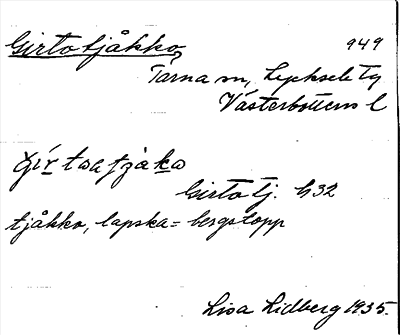 Girtotjåkko 949
Tärna sn, Lycksele tg
Västerbottens l
Girtotj. h32
tjåkko, lapska = bergstopp
Lisa Lidberg 1935.